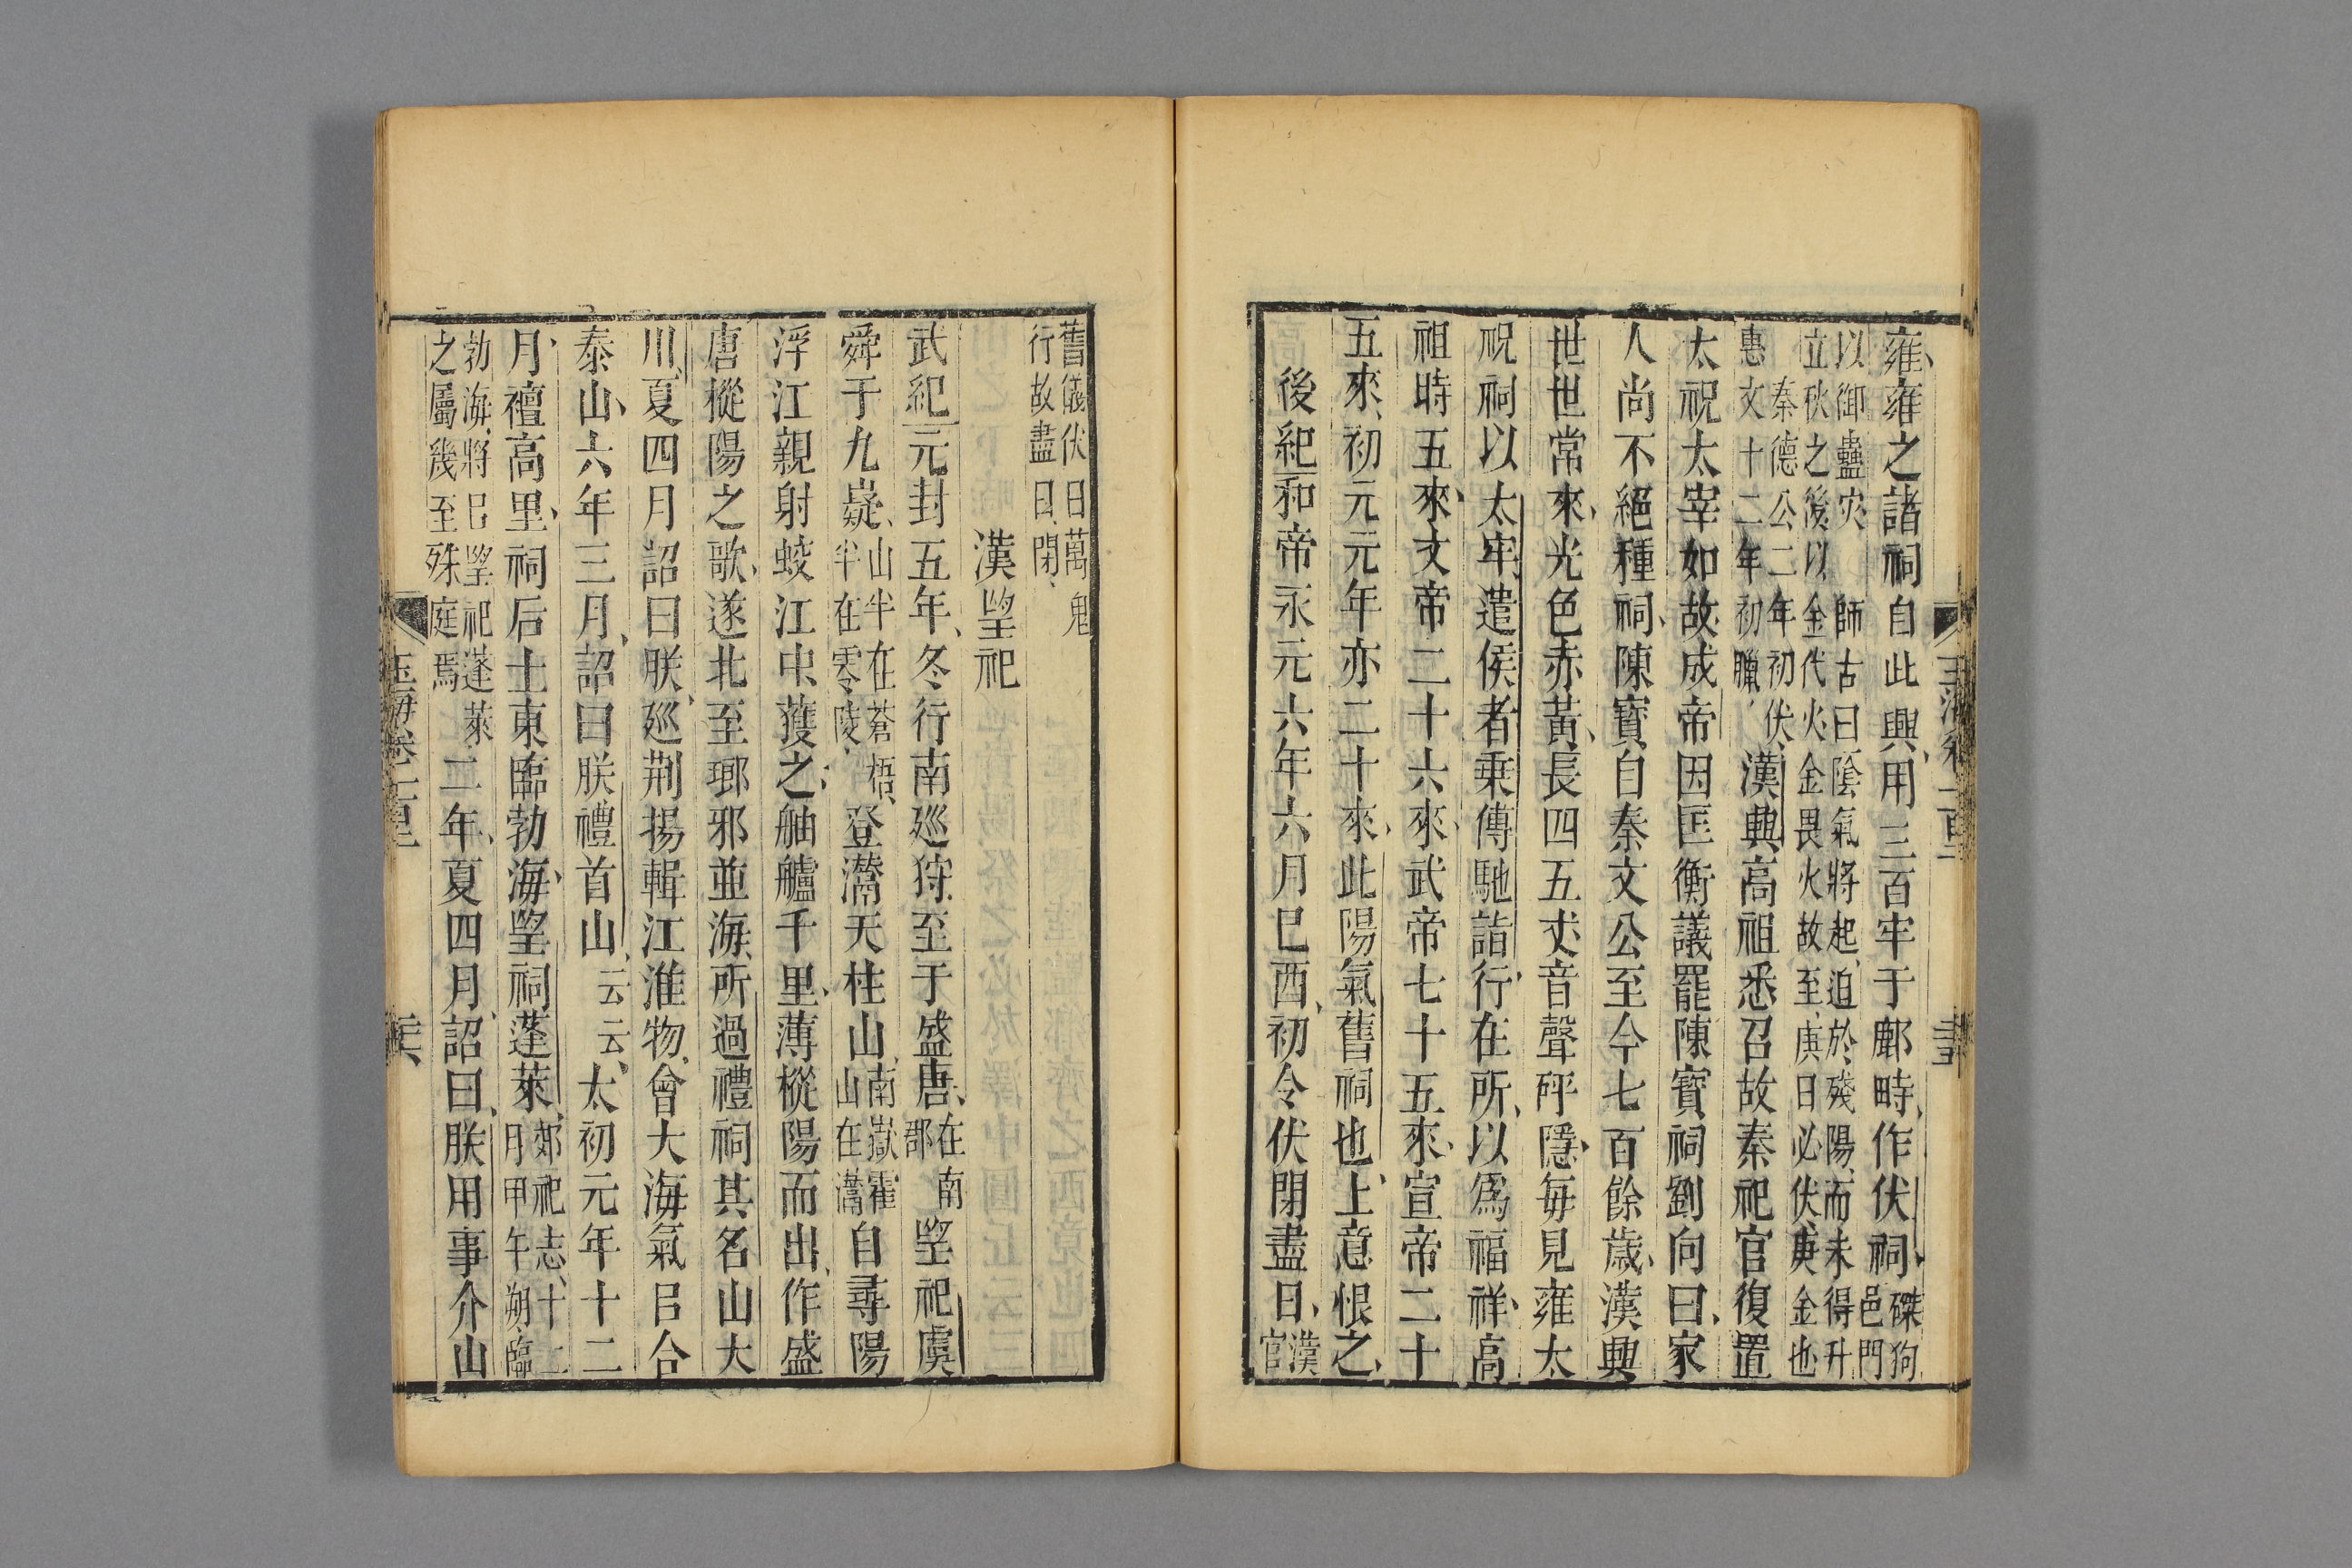 雍雍之諸祠自此興用三百牢于鄜畤作伏祠磔狗邑門
以御蠱灾師古曰陰氣將起迫於殘陽而未得升
立秋之後以金代火金畏火故至庚日必伏庚金也
秦德公二年初伏
惠文十二年初臘漢興高祖悉召故秦祀官復置
太祝太宰如故成帝因匡衡議罷陳寶祠劉向曰家
人尚不絕種祠陳寶自秦文公至今七百餘歲漢興
世世常來光色赤黃長四五丈音聲砰隱每見雍太
祝祠以太牢遣侯者乗傳馳詣行在所以爲福祥高
祖時五來文帝二十六來武帝七十五來宣帝二十
五來初元元年亦二十來此陽氣舊祠也上意恨之
後紀和帝永元六年六月巳酉初令伏閉盡日漢官
舊儀伏日萬鬼
行故盡日閉
漢望祀
武紀元封五年冬行南廵狩至于盛唐在南郡望祀虞
舜于九嶷山半在蒼梧半在零陵登灊天柱山南嶽霍山在灊自尋陽
浮江親射蛟江中獲之舳艫千里薄樅陽而出作盛
唐樅陽之歌遂北至瑯邪並海所過禮祠其名山大
川夏四月詔曰朕廵荆揚輯江淮物會大海氣㠯合
泰山六年三月詔曰朕禮首山云云太初元年十二
月禪高里祠后土東臨勃海望祠蓬萊郊祀志十二月甲午朔臨
勃海將㠯望祀蓬萊
之屬幾至殊庭焉二年夏四月詔曰朕用事介山